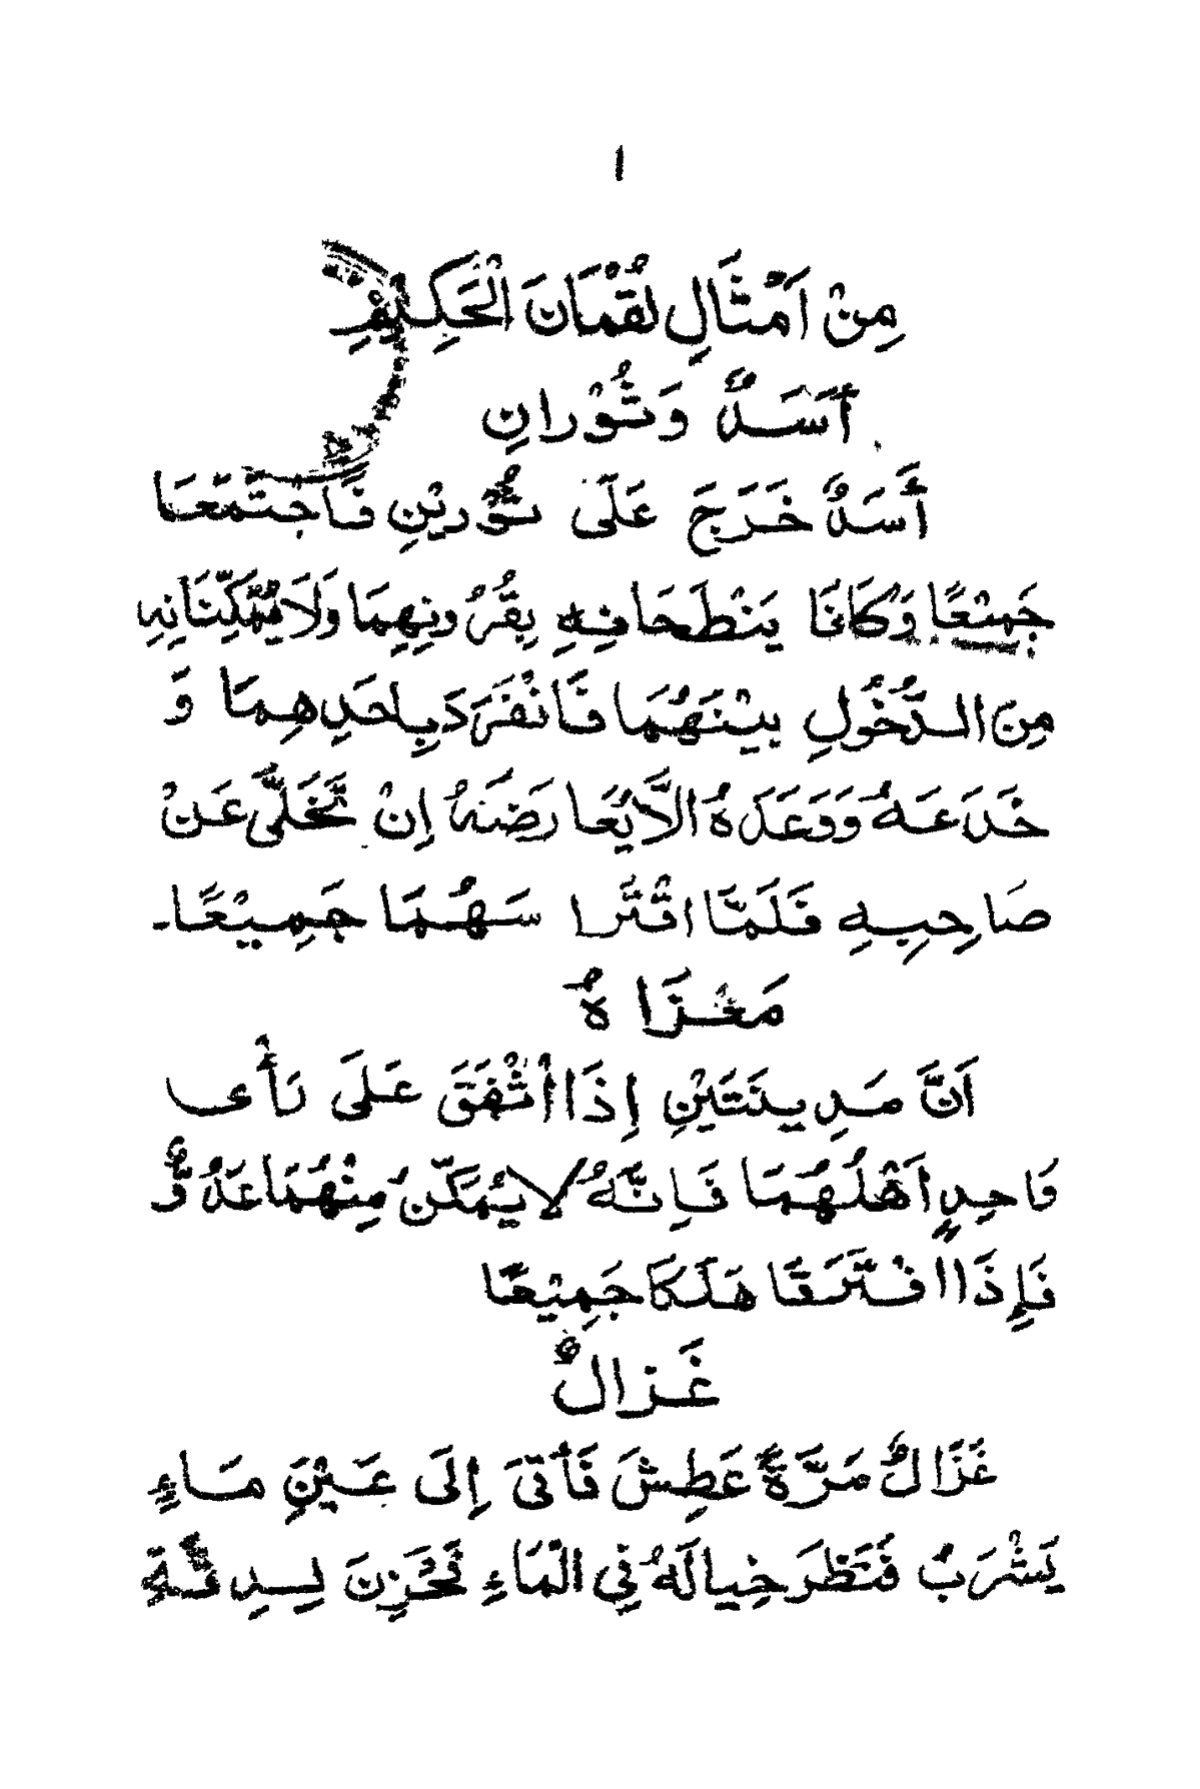 ١
مِنْ اَمْثَالِ لُقْمَانَ الْحَكِيْمِ
اَسَدٌ وَثُوْرانِ
أَسَدٌ خَرَجَ عَلَى ثُوْرَيْنِ فَاجْتَمَعَا
جَمِيْعًا وَكَانَا يَنْطَحَانِهِ بِقُرُونِهِمَا وَلَا يُمَكِّنَانِهِ
مِنَ الدُّخُوْلِ بَيْنَهُمَا فَانْفَرَدَ بِاَحَدِهِمَا وَ
خَدَعَهُ وَوَعَدَهُ الَّا يُعَارِضَهُ اِنْ تَخَلَّى عَنْ
صَاحِبِهِ فَلَمَّا افْتَرَا سَهُمَا جَمِيْعًا۔
مَغْزَاهُ
اَنَّ مَدِينَتَيْنِ اِذَا اتْفَقَ عَلَى رَأْى
وَاحِدٍ اَهْلُهُمَا فَاِنَّهُ لَا يُمَكّنُ مِنْهُمَا عَدُوٌّ
فَإِذَا افْتَرَقَا هَلَكَا جَمِيْعًا
غَزالٌ
غَزَالٌ مَرَّةً عَطِشَ فَأَتَى اِلَى عَيْنِ مَاءٍ
يَشْرَبُ فَنَظَرَ خِيالَهُ فِي الْمَاءِ فَحَزِنَ لِدِقَّةِ